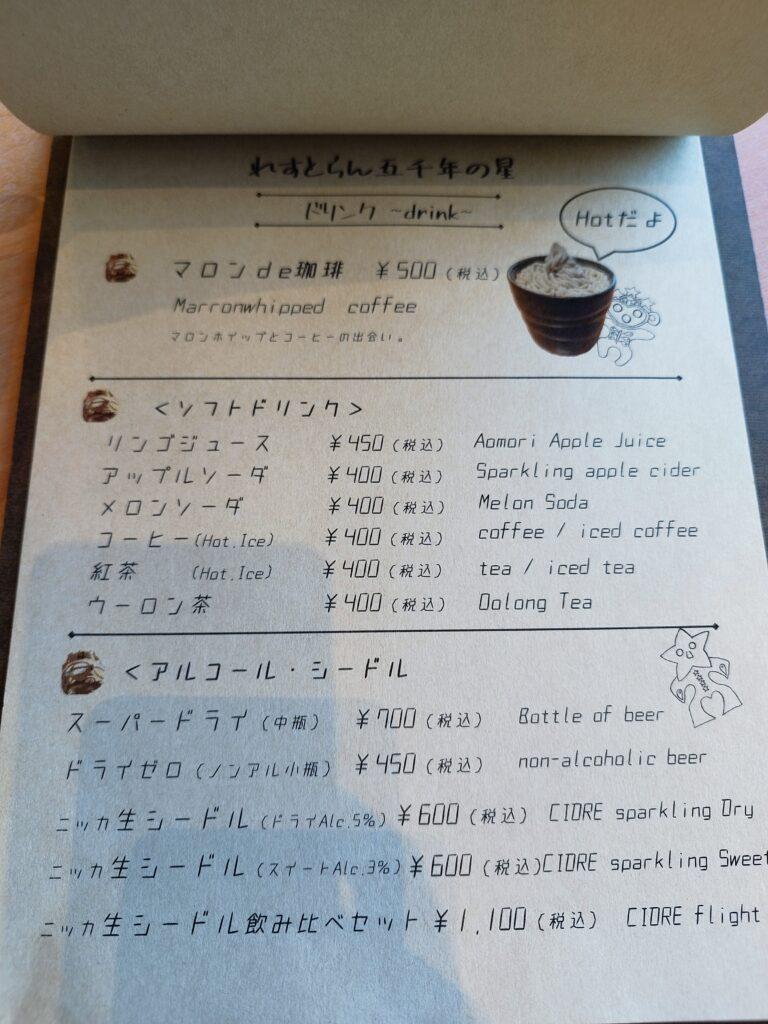 れすとらん五千年の星
ドリンク ~drink~
Hotだよ
マロンde珈琲 ¥500(税込)
Marronwhipped coffee
マロンホイップとコーヒーの出会い。
<ソフトドリンク>
リンゴジュース ¥450(税込) Aomori Apple Juice
アップルソーダ ¥400(税込) Sparkling apple cider
メロンソーダ ¥400(税込) Melon Soda
コーヒー(Hot.Ice) ¥400(税込) coffee / iced coffee
紅茶 (Hot.Ice) ¥400(税込) tea / iced tea
ウーロン茶 ¥400(税込) Oolong Tea
<アルコール・シードル
スーパードライ(中瓶) ¥700(税込) Bottle of beer
ドライゼロ(ノンアル小瓶) ¥450(税込) non-alcoholic beer
ニッカ生シードル(ドライAlc.5%) ¥600(税込) CIDRE sparkling Dry
ニッカ生シードル(スイートAlc.3%) ¥600(税込)CIDRE sparkling Sweet
ニッカ生シードル飲み比べセット ¥1,100(税込) CIDRE flight